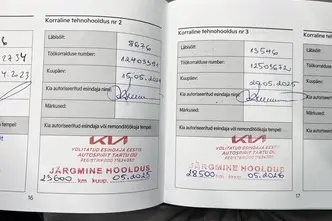 Korraline tehnohooldus nr 2
Läbisõit:
8676
Töökorralduse number:
12403391
Kuupäev:
15.05.2024
Kia autoriseeritud esindaja nimi:
Märkused:
Kia autoriseeritud esindaja või remonditöökoja tempel:
KIA
VOLITATUD ESINDAJA EESTIS
AUTOSPIRIT TARTU OÜ
JÄRGMINE HOOLDUS
23600 km kuup. 05.2025
16
Korraline tehnohooldus nr 3
Läbisõit:
13546
Töökorralduse number:
12503672
Kuupäev:
29.05.2025
Kia autoriseeritud esindaja nimi:
Märkused:
Kia autoriseeritud esindaja või remonditöökoja tempel:
KIA
VOLITATUD ESINDAJA EESTIS
AUTOSPIRIT TARTU OÜ
JÄRGMINE HOOLDUS
28500 km kuup. 05.2026
17